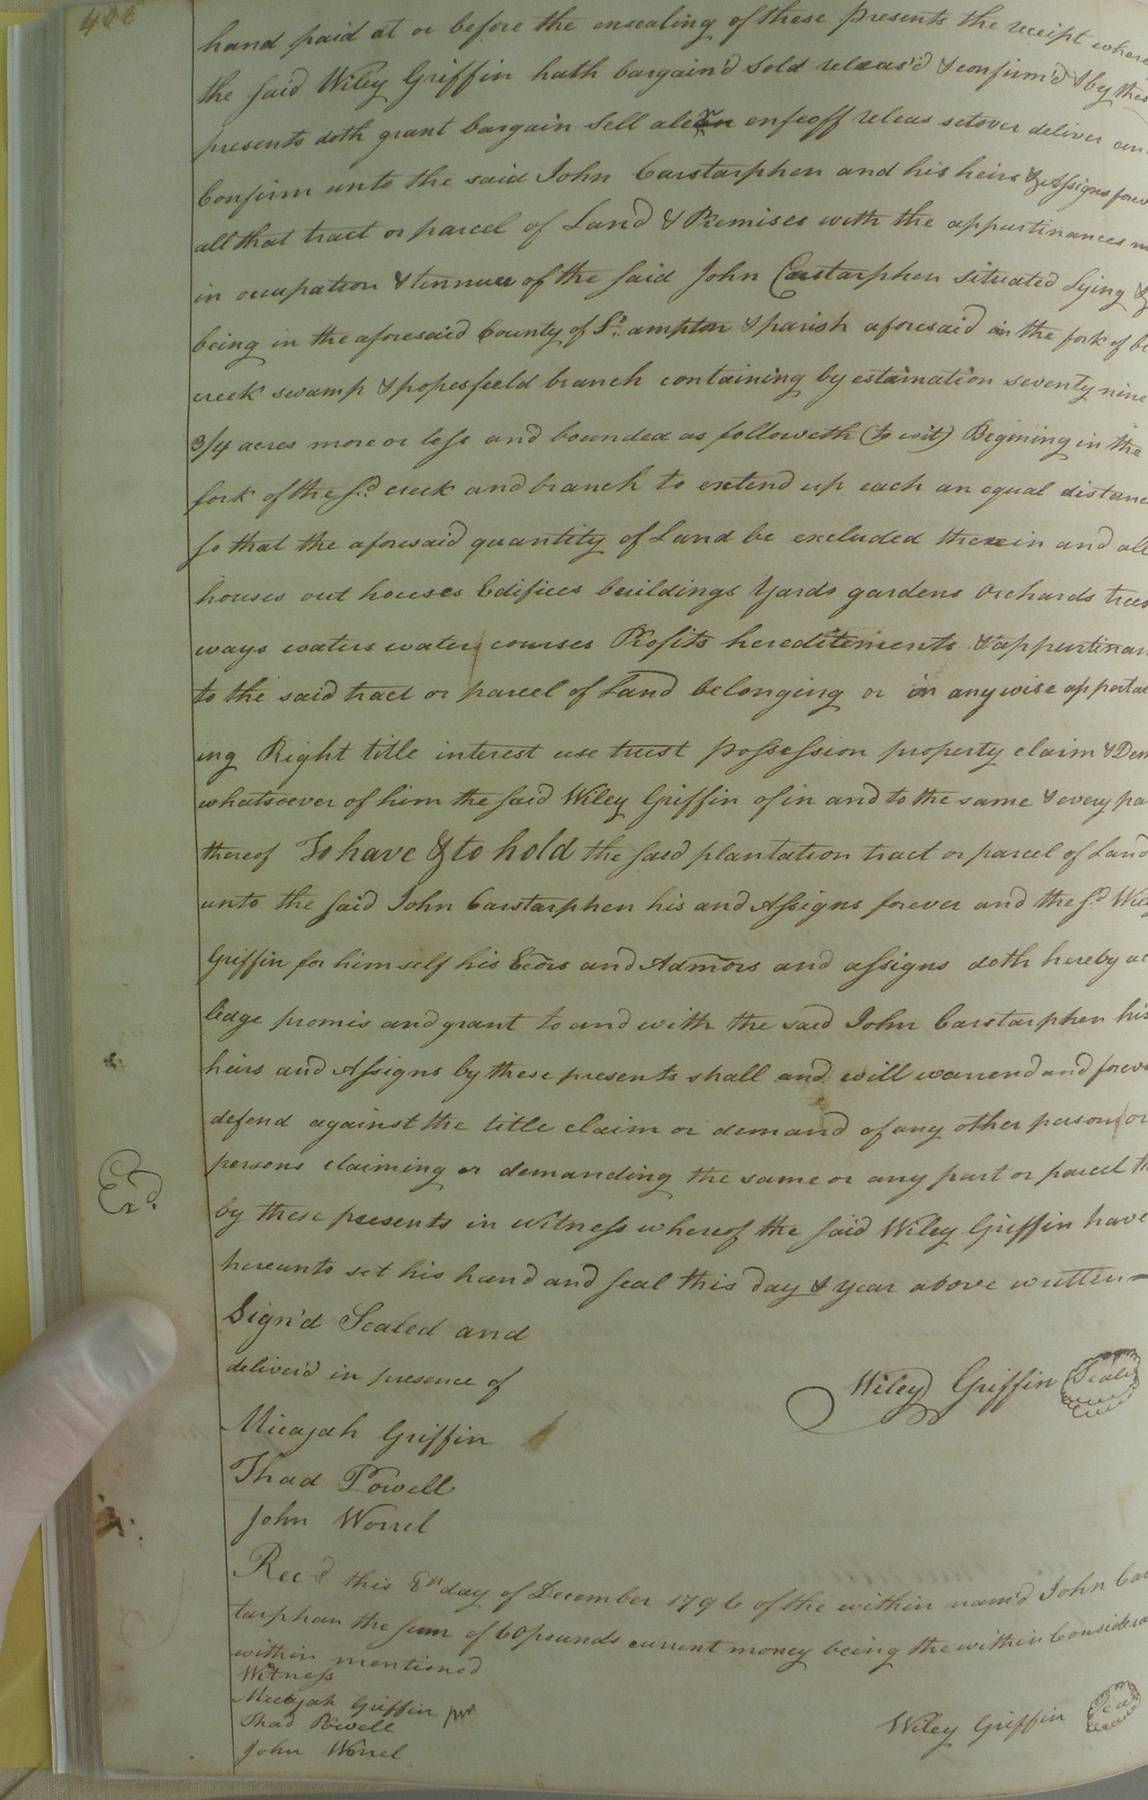 406
hand paid at or before the ensealing of these presents the receipt where
the said Wiley Griffin hath bargain'd sold releas'd & confirm'd & by thes
presents doth grant bargain sell alein enfeoff releas setover deliver an
Confirm unto the said John Carstarphen and his heirs & Assigns forev
all that tract or parcel of Land & Premises with the appurtinances
in occupation & tennure of the said John Carstarphen situated Lying &
being in the aforesaid County of So. ampton & parish aforesaid in the fork of
creek swamp & popesfeeld branch containing by estaination seventy nine
3/4 acres more or less and bounded as followeth (to wit) Begining in the
fork of the sd. creek and branch to extend up each an equal distanc
so that the aforesaid quantity of Land be excluded therein and all
houses out houses Edifices buildings Yards gardens Orchards trees
ways waters water courses Profits hereditiments & appurtinan
to the said tract or parcel of Land belonging or in anywise appertai
ing Right title interest use trust possession property claim & Dem
whatsoever of him the said Wiley Griffin of in and to the same & every pa
thereof To have & to hold the said plantation tract or parcel of Land
unto the said John Carstarphen his and Assigns forever and the sd Wile
Griffin for himself his Ecors and Admors and assigns doth hereby ac
ledge promis and grant to and with the said John Carstarphen his
heirs and Assigns by these presents shall and will warrend and forev
defend against the title claim or demand of any other person or
persons claiming or demanding the same or any part or parcel th
Exd.
by these presents in witness whereof the said Wiley Griffin have
hereunto set his hand and seal this day & year above written
Sign'd Sealed and
deliver'd in presence of
Wiley Griffin Seal
Micajah Griffin
Thad Powell
John Worrel
Rec'd this 8th day of December 1796 of the within nam'd John Car
tarphan the sum of 60 pounds current money being the within Considera
within mentioned
Witness
Micajah Griffin
Thad Powell
Wiley Griffin Seal
John Worrel